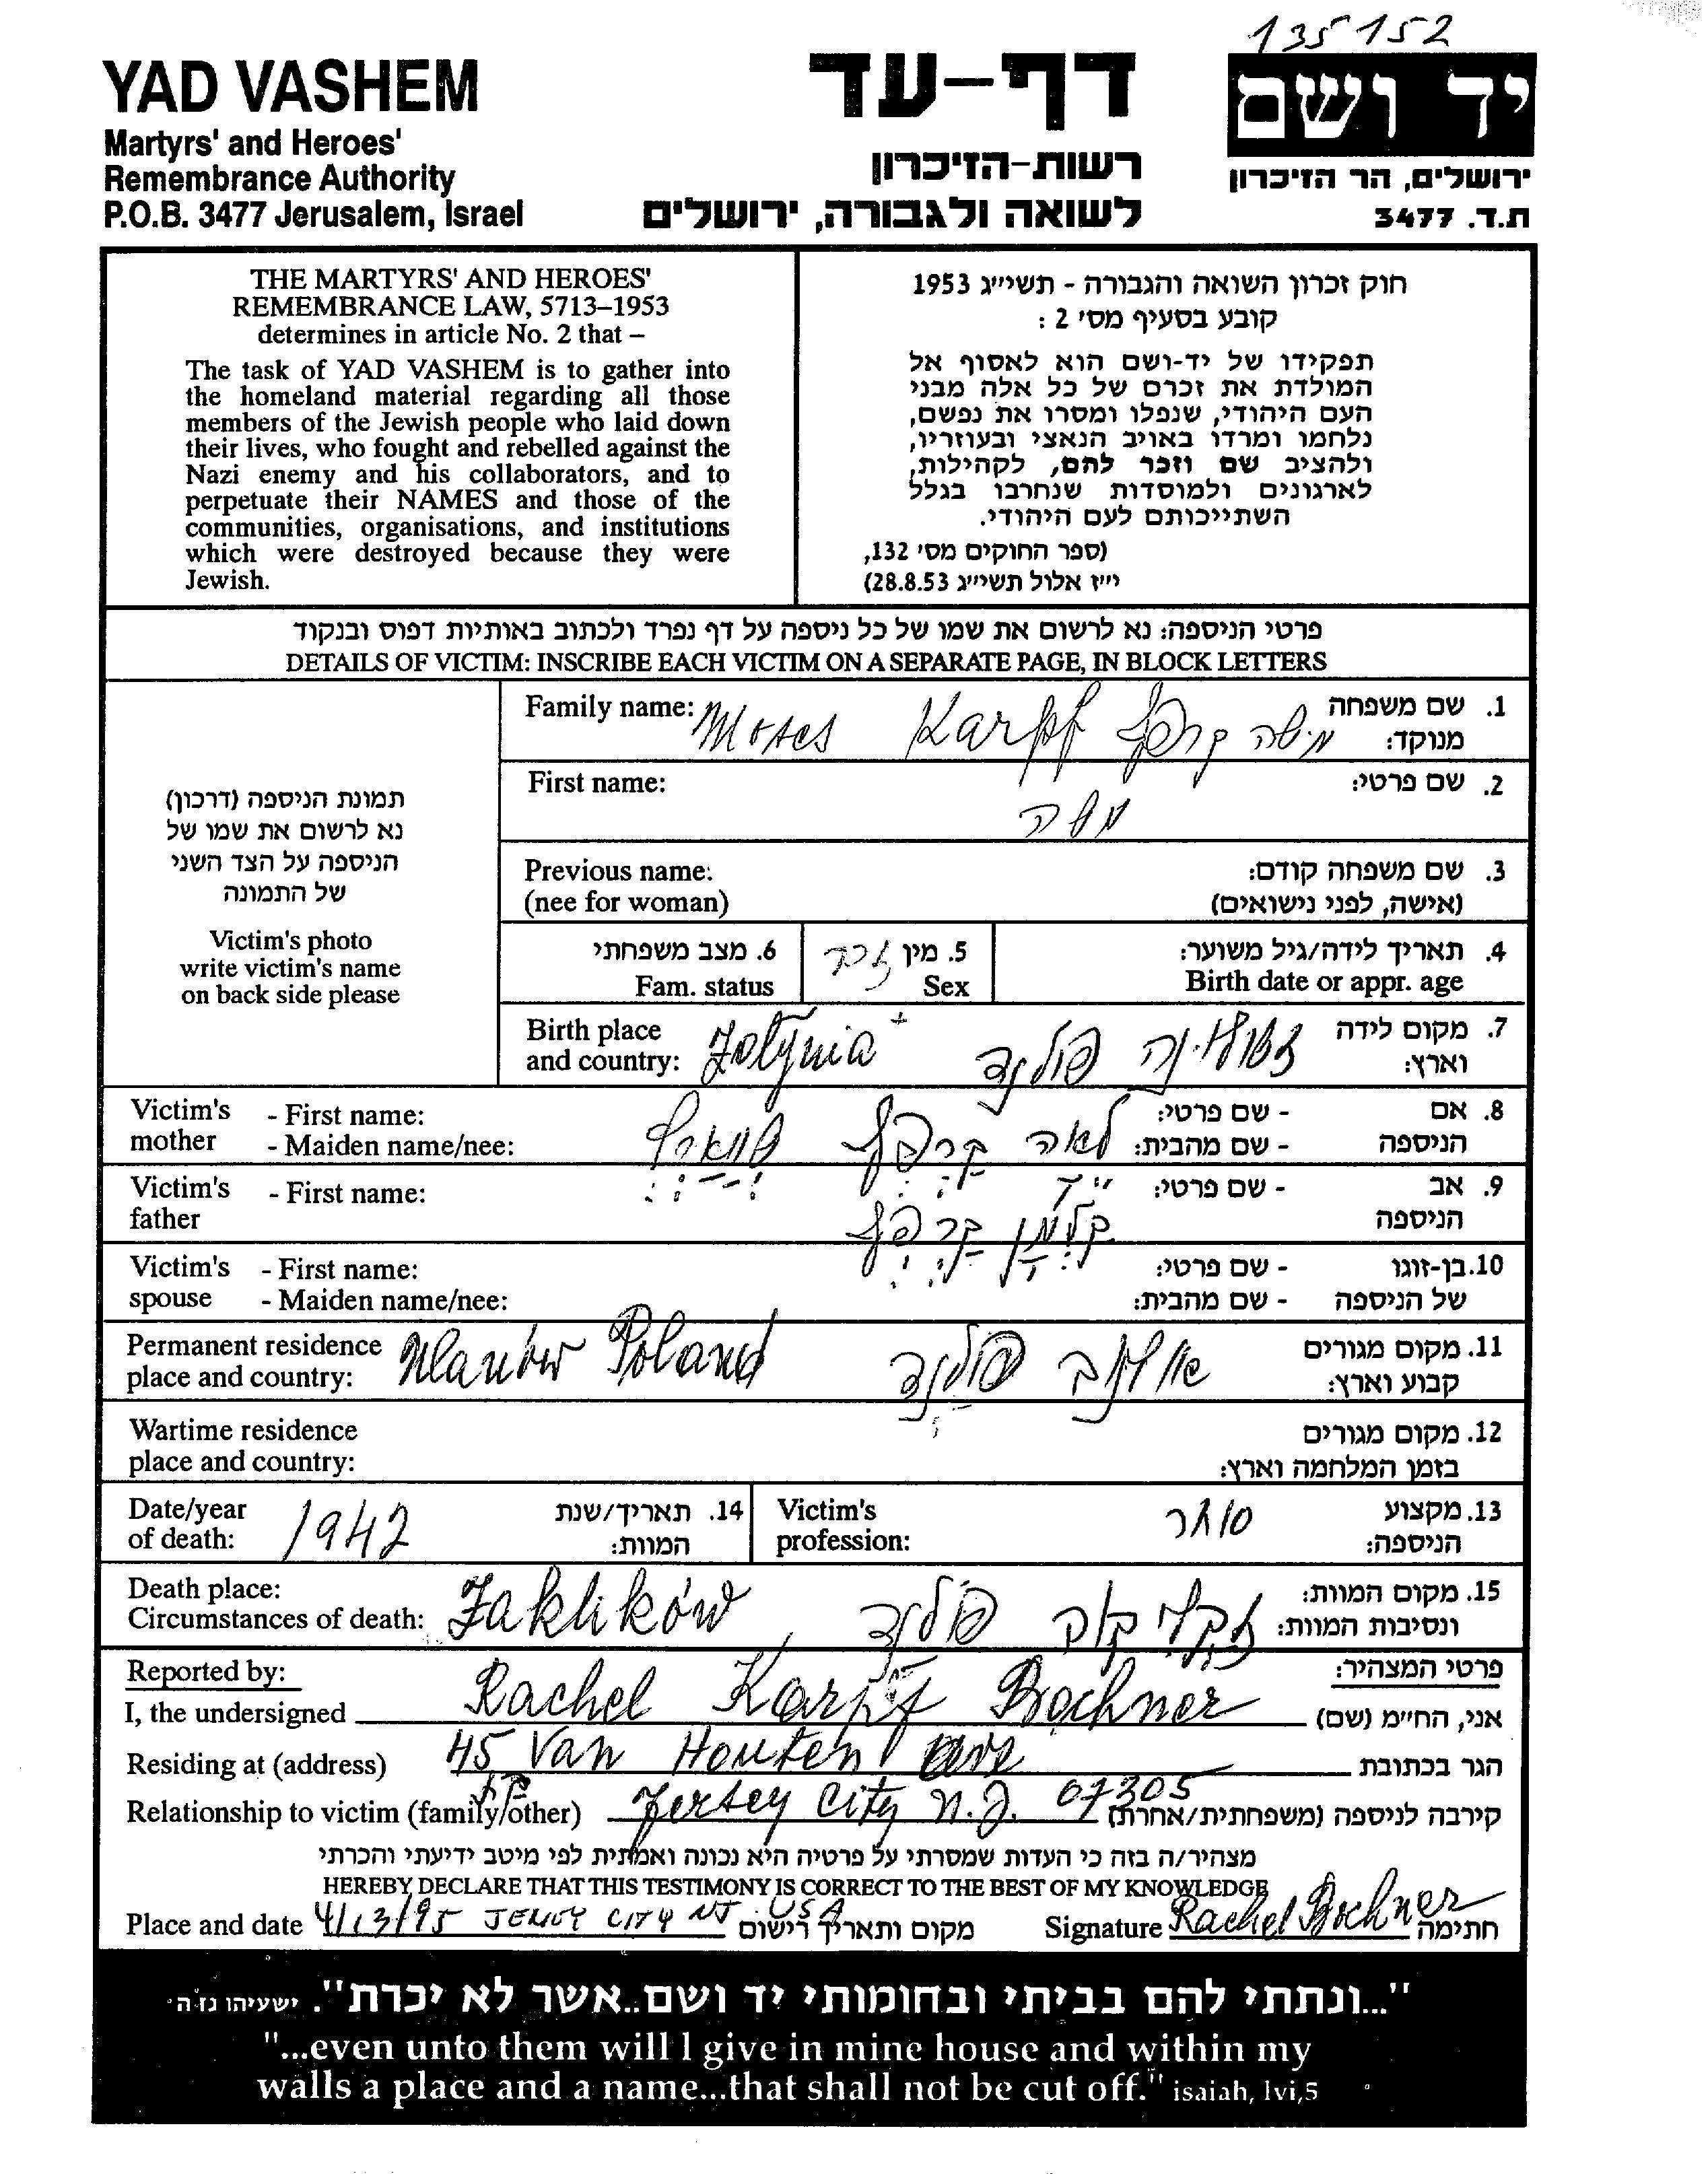 135152
YAD VASHEM
Martyrs' and Heroes'
Remembrance Authority
P.O.B. 3477 Jerusalem, Israel
דף-עד
רשות-הזיכרון
לשואה ולגבורה, ירושלים
יד ושם
ירושלים, הר הזיכרון
ת.ד. 3477
THE MARTYRS' AND HEROES'
REMEMBRANCE LAW, 5713–1953
determines in article No. 2 that –
The task of YAD VASHEM is to gather into
the homeland material regarding all those
members of the Jewish people who laid down
their lives, who fought and rebelled against the
Nazi enemy and his collaborators, and to
perpetuate their NAMES and those of the
communities, organisations, and institutions
which were destroyed because they were
Jewish.
חוק זכרון השואה והגבורה - תשי״ג 1953
קובע בסעיף מס' 2 :
תפקידו של יד-ושם הוא לאסוף אל
המולדת את זכרם של כל אלה מבני
העם היהודי, שנפלו ומסרו את נפשם,
נלחמו ומרדו באויב הנאצי ובעוזריו,
ולהציב שם וזכר להם, לקהילות,
לארגונים ולמוסדות שנחרבו בגלל
השתייכותם לעם היהודי.
(ספר החוקים מס' 132,
י״ז אלול תשי״ג 28.8.53)
פרטי הניספה: נא לרשום את שמו של כל ניספה על דף נפרד ולכתוב באותיות דפוס ובנקוד
DETAILS OF VICTIM: INSCRIBE EACH VICTIM ON A SEPARATE PAGE, IN BLOCK LETTERS
תמונת הניספה (דרכון)
נא לרשום את שמו של
הניספה על הצד השני
של התמונה
Victim's photo
write victim's name
on back side please
Family name: Moses Karpf משה קרפף 1. שם משפחה
מנוקד:
First name: 2. שם פרטי:
משה
Previous name: 3. שם משפחה קודם:
(nee for woman) (אישה, לפני נישואים)
6. מצב משפחתי 5. מין זכר 4. תאריך לידה/גיל משוער:
Fam. status Sex Birth date or appr. age
Birth place 7. מקום לידה
and country: Żołynia פולנד וארץ:
Victim's - First name: - שם פרטי: 8. אם
mother - Maiden name/nee: לאה קרפף - שם מהבית: הניספה
Victim's - First name: - שם פרטי: 9. אב
father קלמן קרפף הניספה
Victim's - First name: - שם פרטי: 10. בן-זוגו
spouse - Maiden name/nee: - שם מהבית: של הניספה
Permanent residence 11. מקום מגורים
place and country: Ulanów Poland אולנוב פולנד קבוע וארץ:
Wartime residence 12. מקום מגורים
place and country: בזמן המלחמה וארץ:
Date/year 14. תאריך/שנת
of death: 1942 המוות:
Victim's 13. מקצוע
profession: סוחר הניספה:
Death place: 15. מקום המוות:
Circumstances of death: Zaklików זקליקוב פולנד ונסיבות המוות:
Reported by: פרטי המצהיר:
I, the undersigned Rachel Karpf Bochner אני, הח״מ (שם)
Residing at (address) 45 Van Houten ave הגר בכתובת
Relationship to victim (family/other) Jersey City N.J. 07305 קירבה לניספה (משפחתית/אחרת)
מצהיר/ה בזה כי העדות שמסרתי על פרטיה היא נכונה ואמתית לפי מיטב ידיעתי והכרתי
HEREBY DECLARE THAT THIS TESTIMONY IS CORRECT TO THE BEST OF MY KNOWLEDGE
Place and date 4/13/95 JERSEY CITY NJ USA מקום ותאריך רישום Signature Rachel Bochner חתימה
"...ונתתי להם בביתי ובחומותי יד ושם..אשר לא יכרת". ישעיהו נו ה
"...even unto them will I give in mine house and within my
walls a place and a name...that shall not be cut off." isaiah, lvi,5